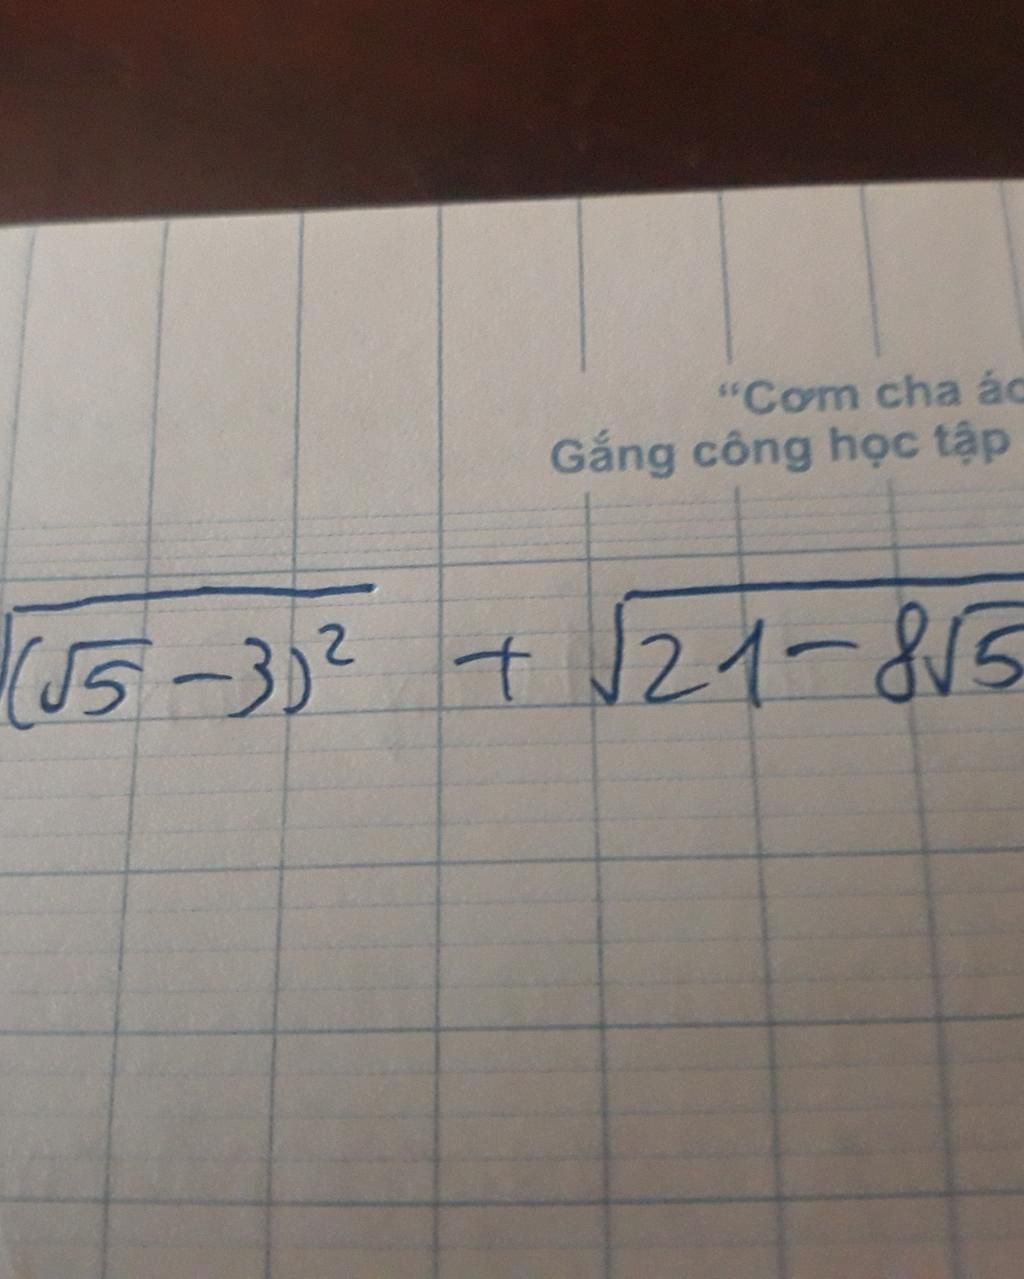 “Cơm cha
Gắng công học tập
√(√5 - 3)² + √21 - 8√5